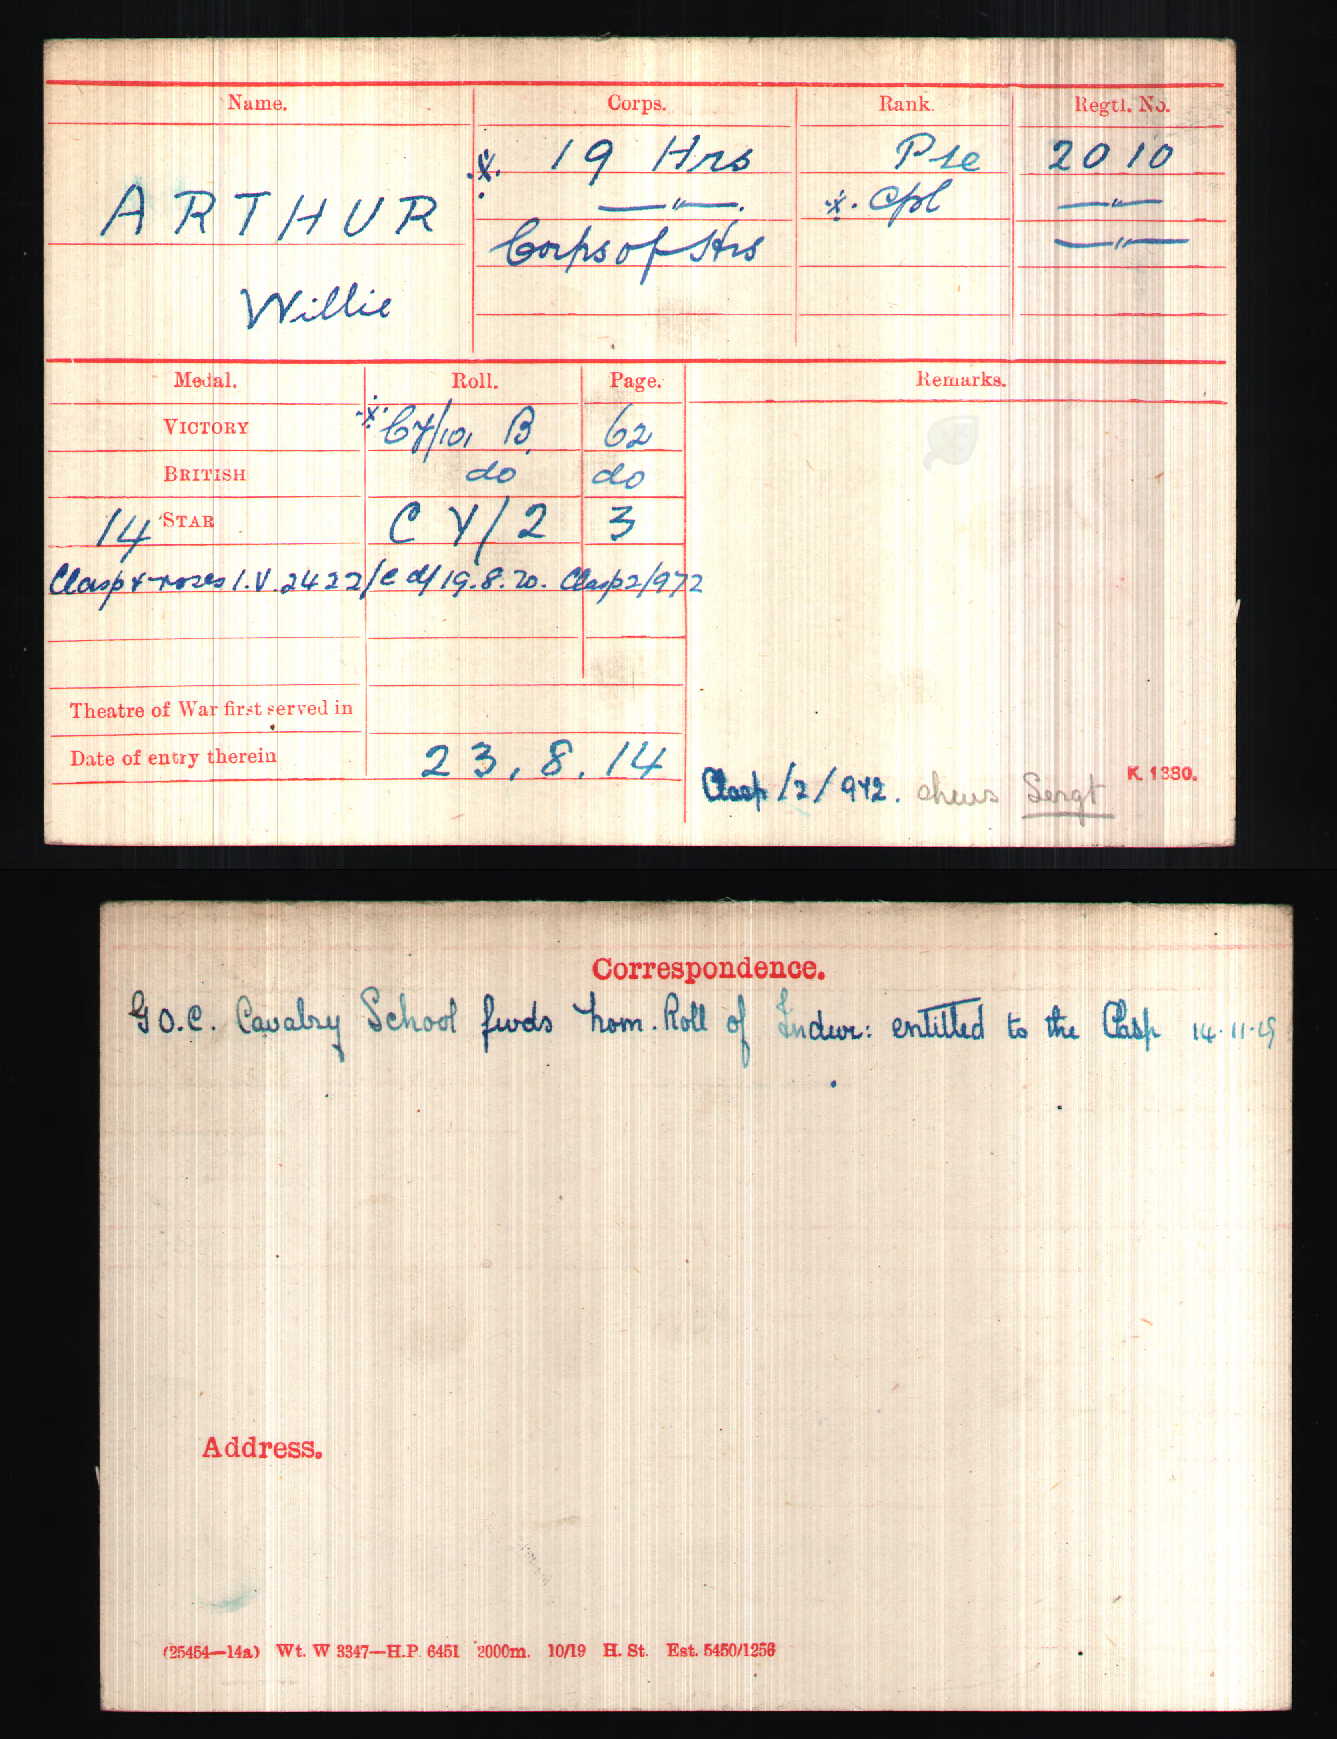 Name. Corps. Rank. Regtl. No.
19 Hrs Pte 2010
ARTHUR —"—. Cpl —"—
Corps of Hrs —"—
Willie
Medal. Roll. Page. Remarks.
VICTORY CY/101 B 62
BRITISH do do
14 STAR CY/2 3
Clasp & roses I.V. 2422/E d/19.8.20. Clasp 2/972
Theatre of War first served in
Date of entry therein 23.8.14
Clasp /2/972. Sergt K. 1380.
Correspondence.
G.O.C. Cavalry School fwds nom. Roll of Indiv: entitled to the Clasp 14.11.19
Address.
(25454—14a) Wt. W 3347—H.P. 6451 2000m. 10/19 H. St. Est. 5450/1256